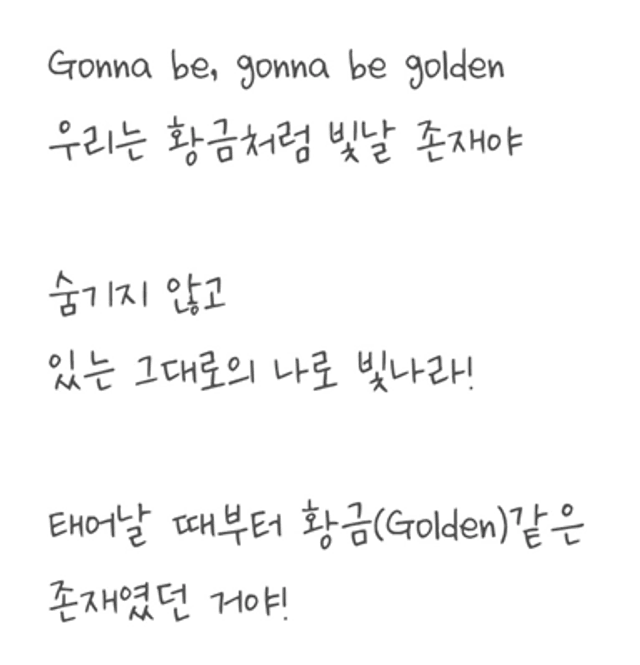 Gonna be, gonna be golden
우리는 황금처럼 빛날 존재야
숨기지 않고
있는 그대로의 나로 빛나라!
태어날 때부터 황금(Golden)같은
존재였던 거야!